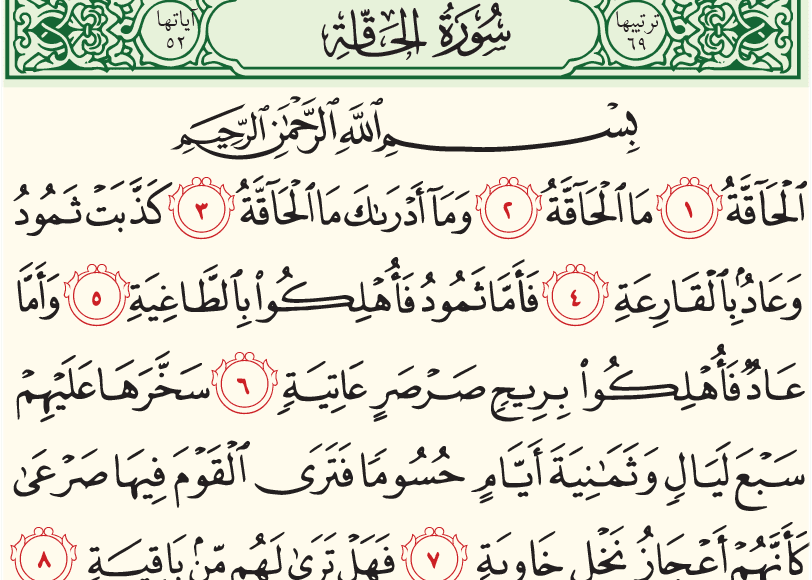 ترتيبها ٦٩ سُورَةُ الحَاقَّةِ آياتها ٥٢
بِسْمِ ٱللَّهِ ٱلرَّحْمَٰنِ ٱلرَّحِيمِ
ٱلْحَآقَّةُ ١ مَا ٱلْحَآقَّةُ ٢ وَمَآ أَدْرَىٰكَ مَا ٱلْحَآقَّةُ ٣ كَذَّبَتْ ثَمُودُ
وَعَادُۢ بِٱلْقَارِعَةِ ٤ فَأَمَّا ثَمُودُ فَأُهْلِكُوا۟ بِٱلطَّاغِيَةِ ٥ وَأَمَّا
عَادٌ فَأُهْلِكُوا۟ بِرِيحٍ صَرْصَرٍ عَاتِيَةٍ ٦ سَخَّرَهَا عَلَيْهِمْ
سَبْعَ لَيَالٍ وَثَمَٰنِيَةَ أَيَّامٍ حُسُومًا فَتَرَى ٱلْقَوْمَ فِيهَا صَرْعَىٰ
كَأَنَّهُمْ أَعْجَازُ نَخْلٍ خَاوِيَةٍ ٧ فَهَلْ تَرَىٰ لَهُم مِّنۢ بَاقِيَةٍ ٨